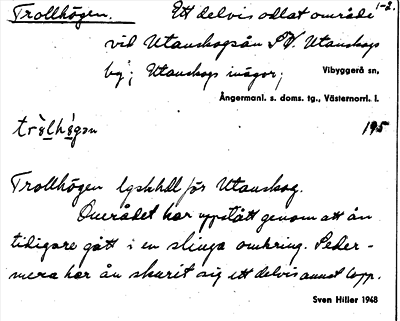 Trollhögen. Ett delvis odlat område 1-2.
vid Utanskogsån SV. Utanskogs
by; Utanskogs inägor; Vibyggerå sn,
Ångermanl. s. doms. tg., Västernorrl. l.
195
Trollhögen för Utanskog.
Området har uppstått genom att ån
tidigare gått i en slinga omkring. Seder-
mera har ån skurit sig ett delvis annat lopp.
Sven Hiller 1948